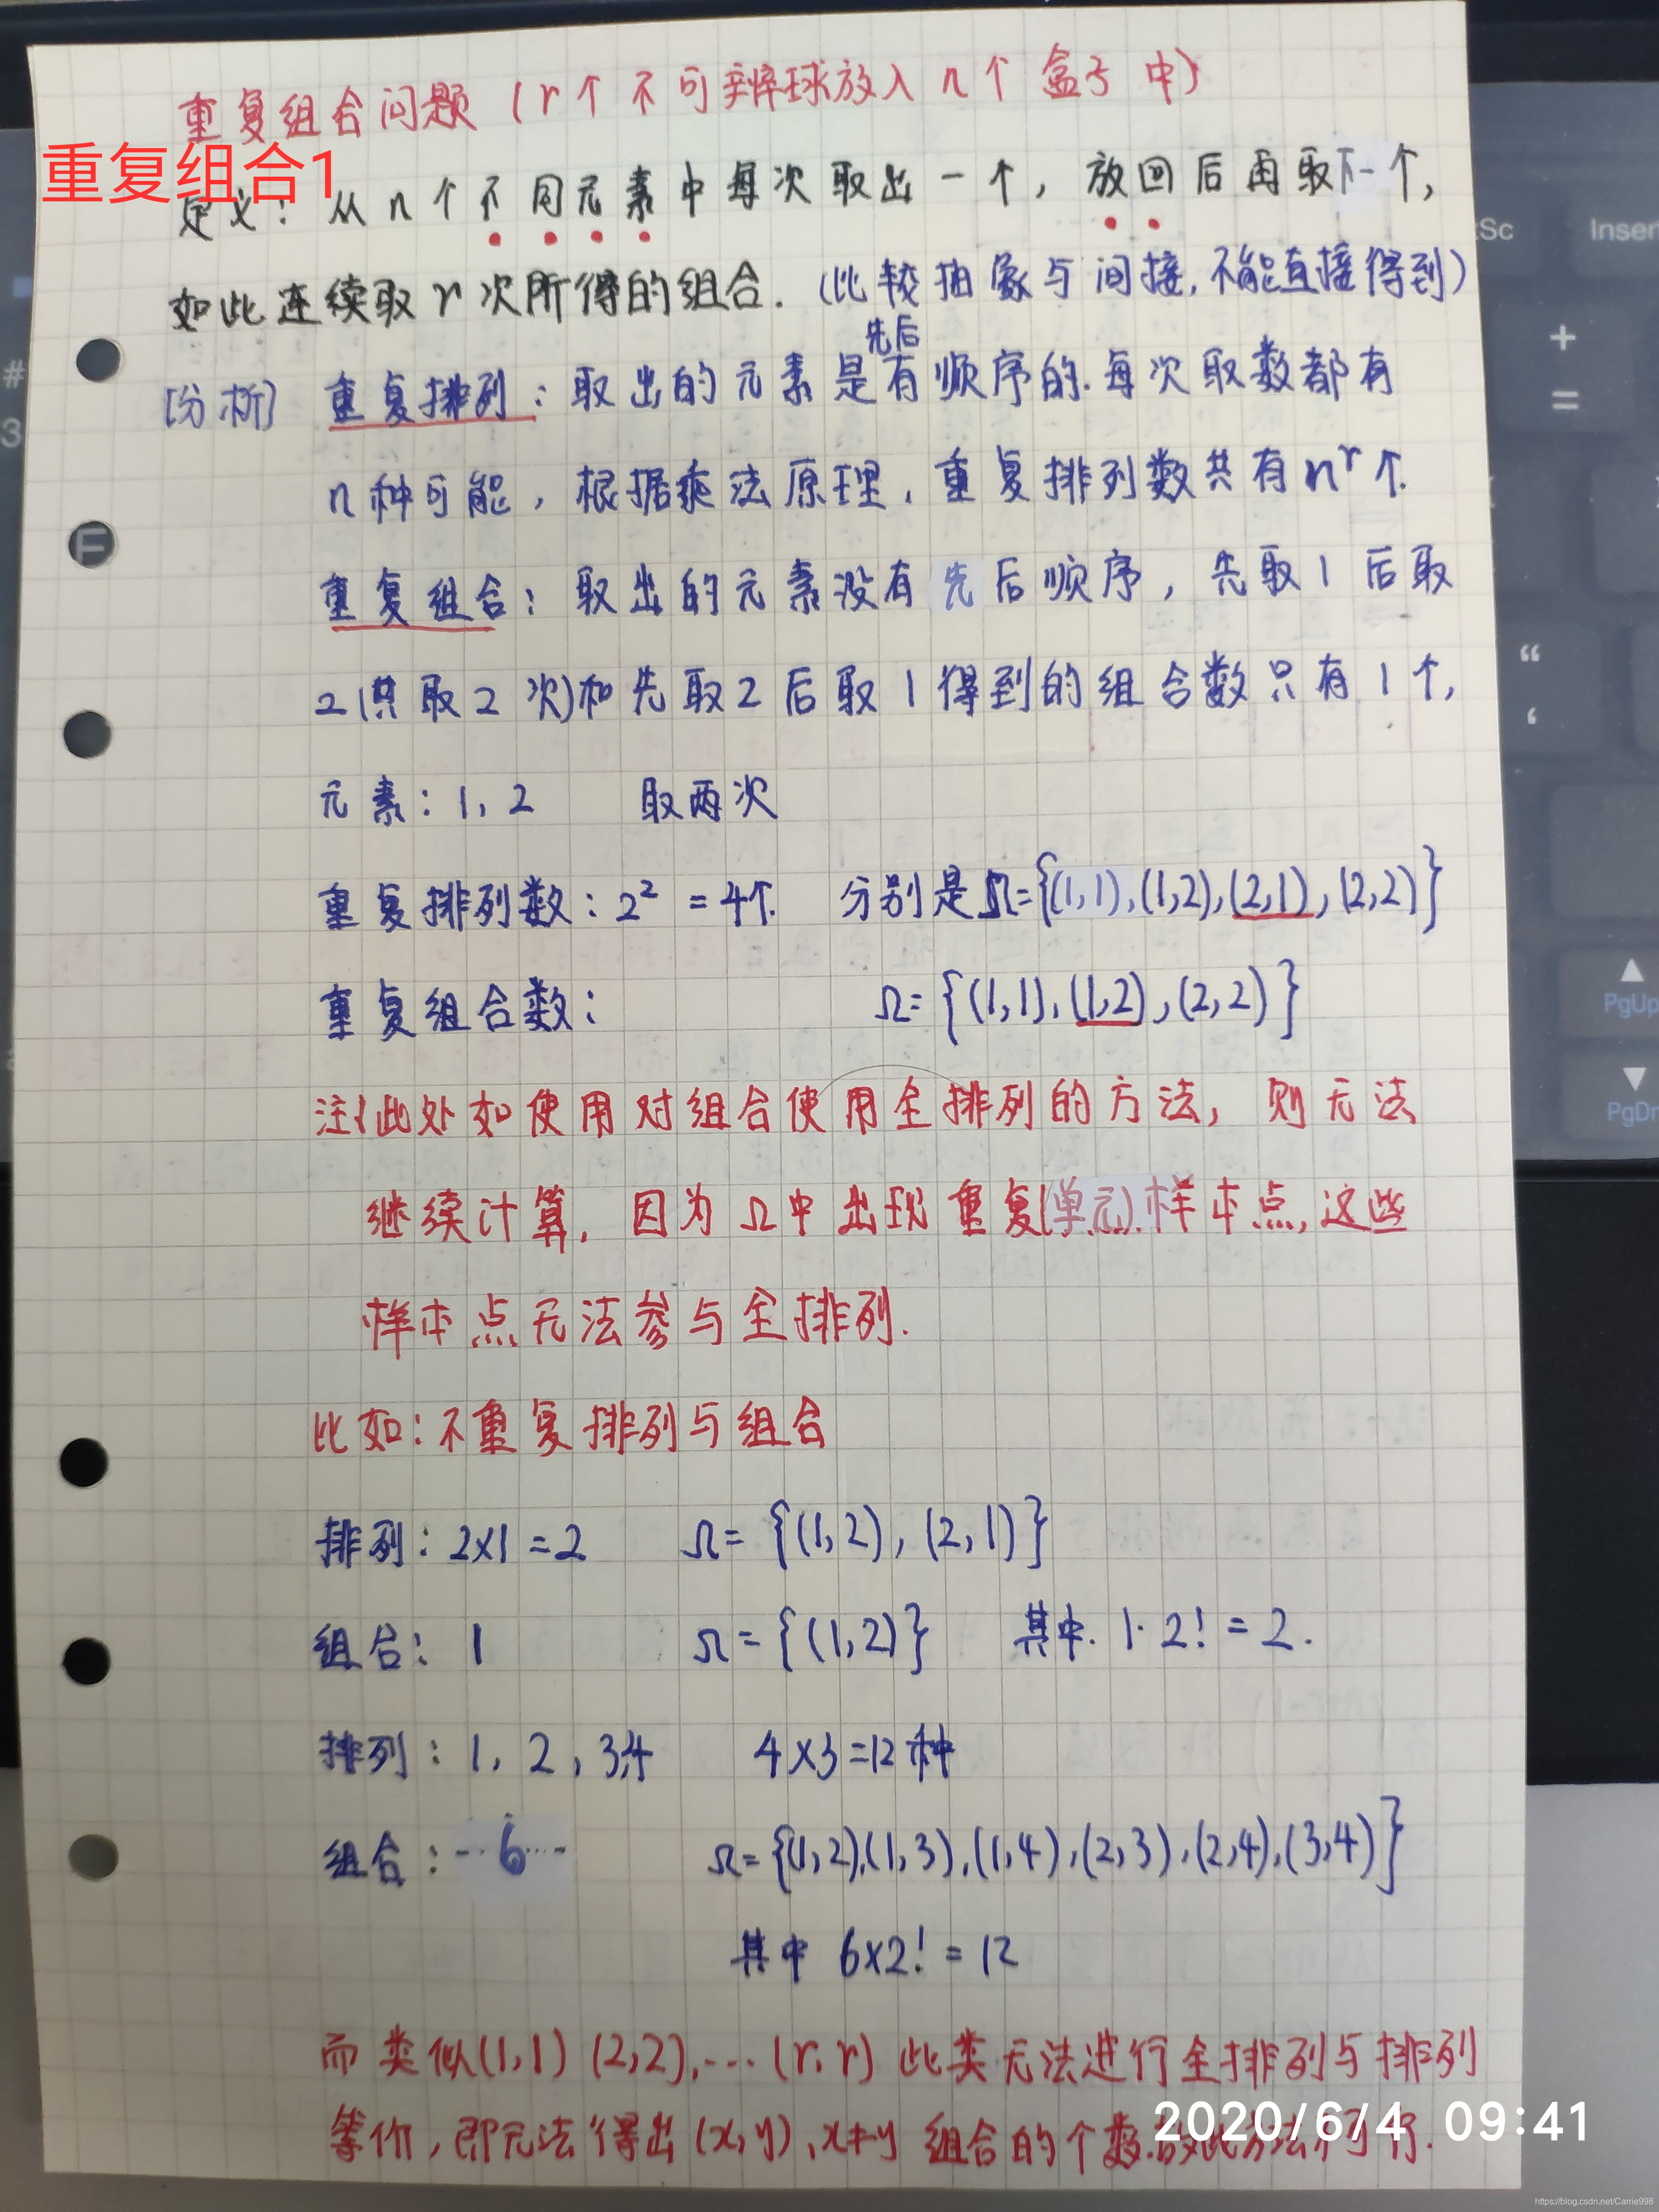 重复组合问题（r个不可辨球放入n个盒子中）
重复组合1
定义：从n个不同元素中每次取出一个，放回后再取下一个，
如此连续取r次所得的组合.（比较抽象与间接，不能直接得到）
先后
[分析] 重复排列：取出的元素是有顺序的.每次取数都有
n种可能，根据乘法原理，重复排列数共有n^r个.
重复组合：取出的元素没有先后顺序，先取1后取
2(共取2次)和先取2后取1得到的组合数只有1个，
元素：1，2 取两次
重复排列数：2² =4个. 分别是Ω={(1,1),(1,2),(2,1),(2,2)}
重复组合数： Ω={(1,1),(1,2),(2,2)}
注：此处如使用对组合使用全排列的方法，则无法
继续计算，因为Ω中出现重复(单元)样本点，这些
样本点无法参与全排列.
比如：不重复排列与组合
排列：2×1=2 Ω={(1,2),(2,1)}
组合：1 Ω={(1,2)} 其中.1·2!=2.
排列：1，2，3,4 4×3=12种
组合：--6--- Ω={(1,2),(1,3),(1,4),(2,3),(2,4),(3,4)}
其中 6×2!=12
而类似(1,1)(2,2),…(r,r)此类无法进行全排列与排列
等价，即无法得出(x,y),x≠y 组合的个数.故此方法不可行.
2020/6/4 09:41
#
3
Sc
Inser
+
=
“
‘
PgUp
PgDn
https://blog.csdn.net/Carrie998